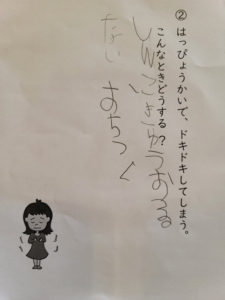 ② はっぴょうかいで、ドキドキしてしまう。
こんなときどうする？
しんこきゅうおする
おちつく